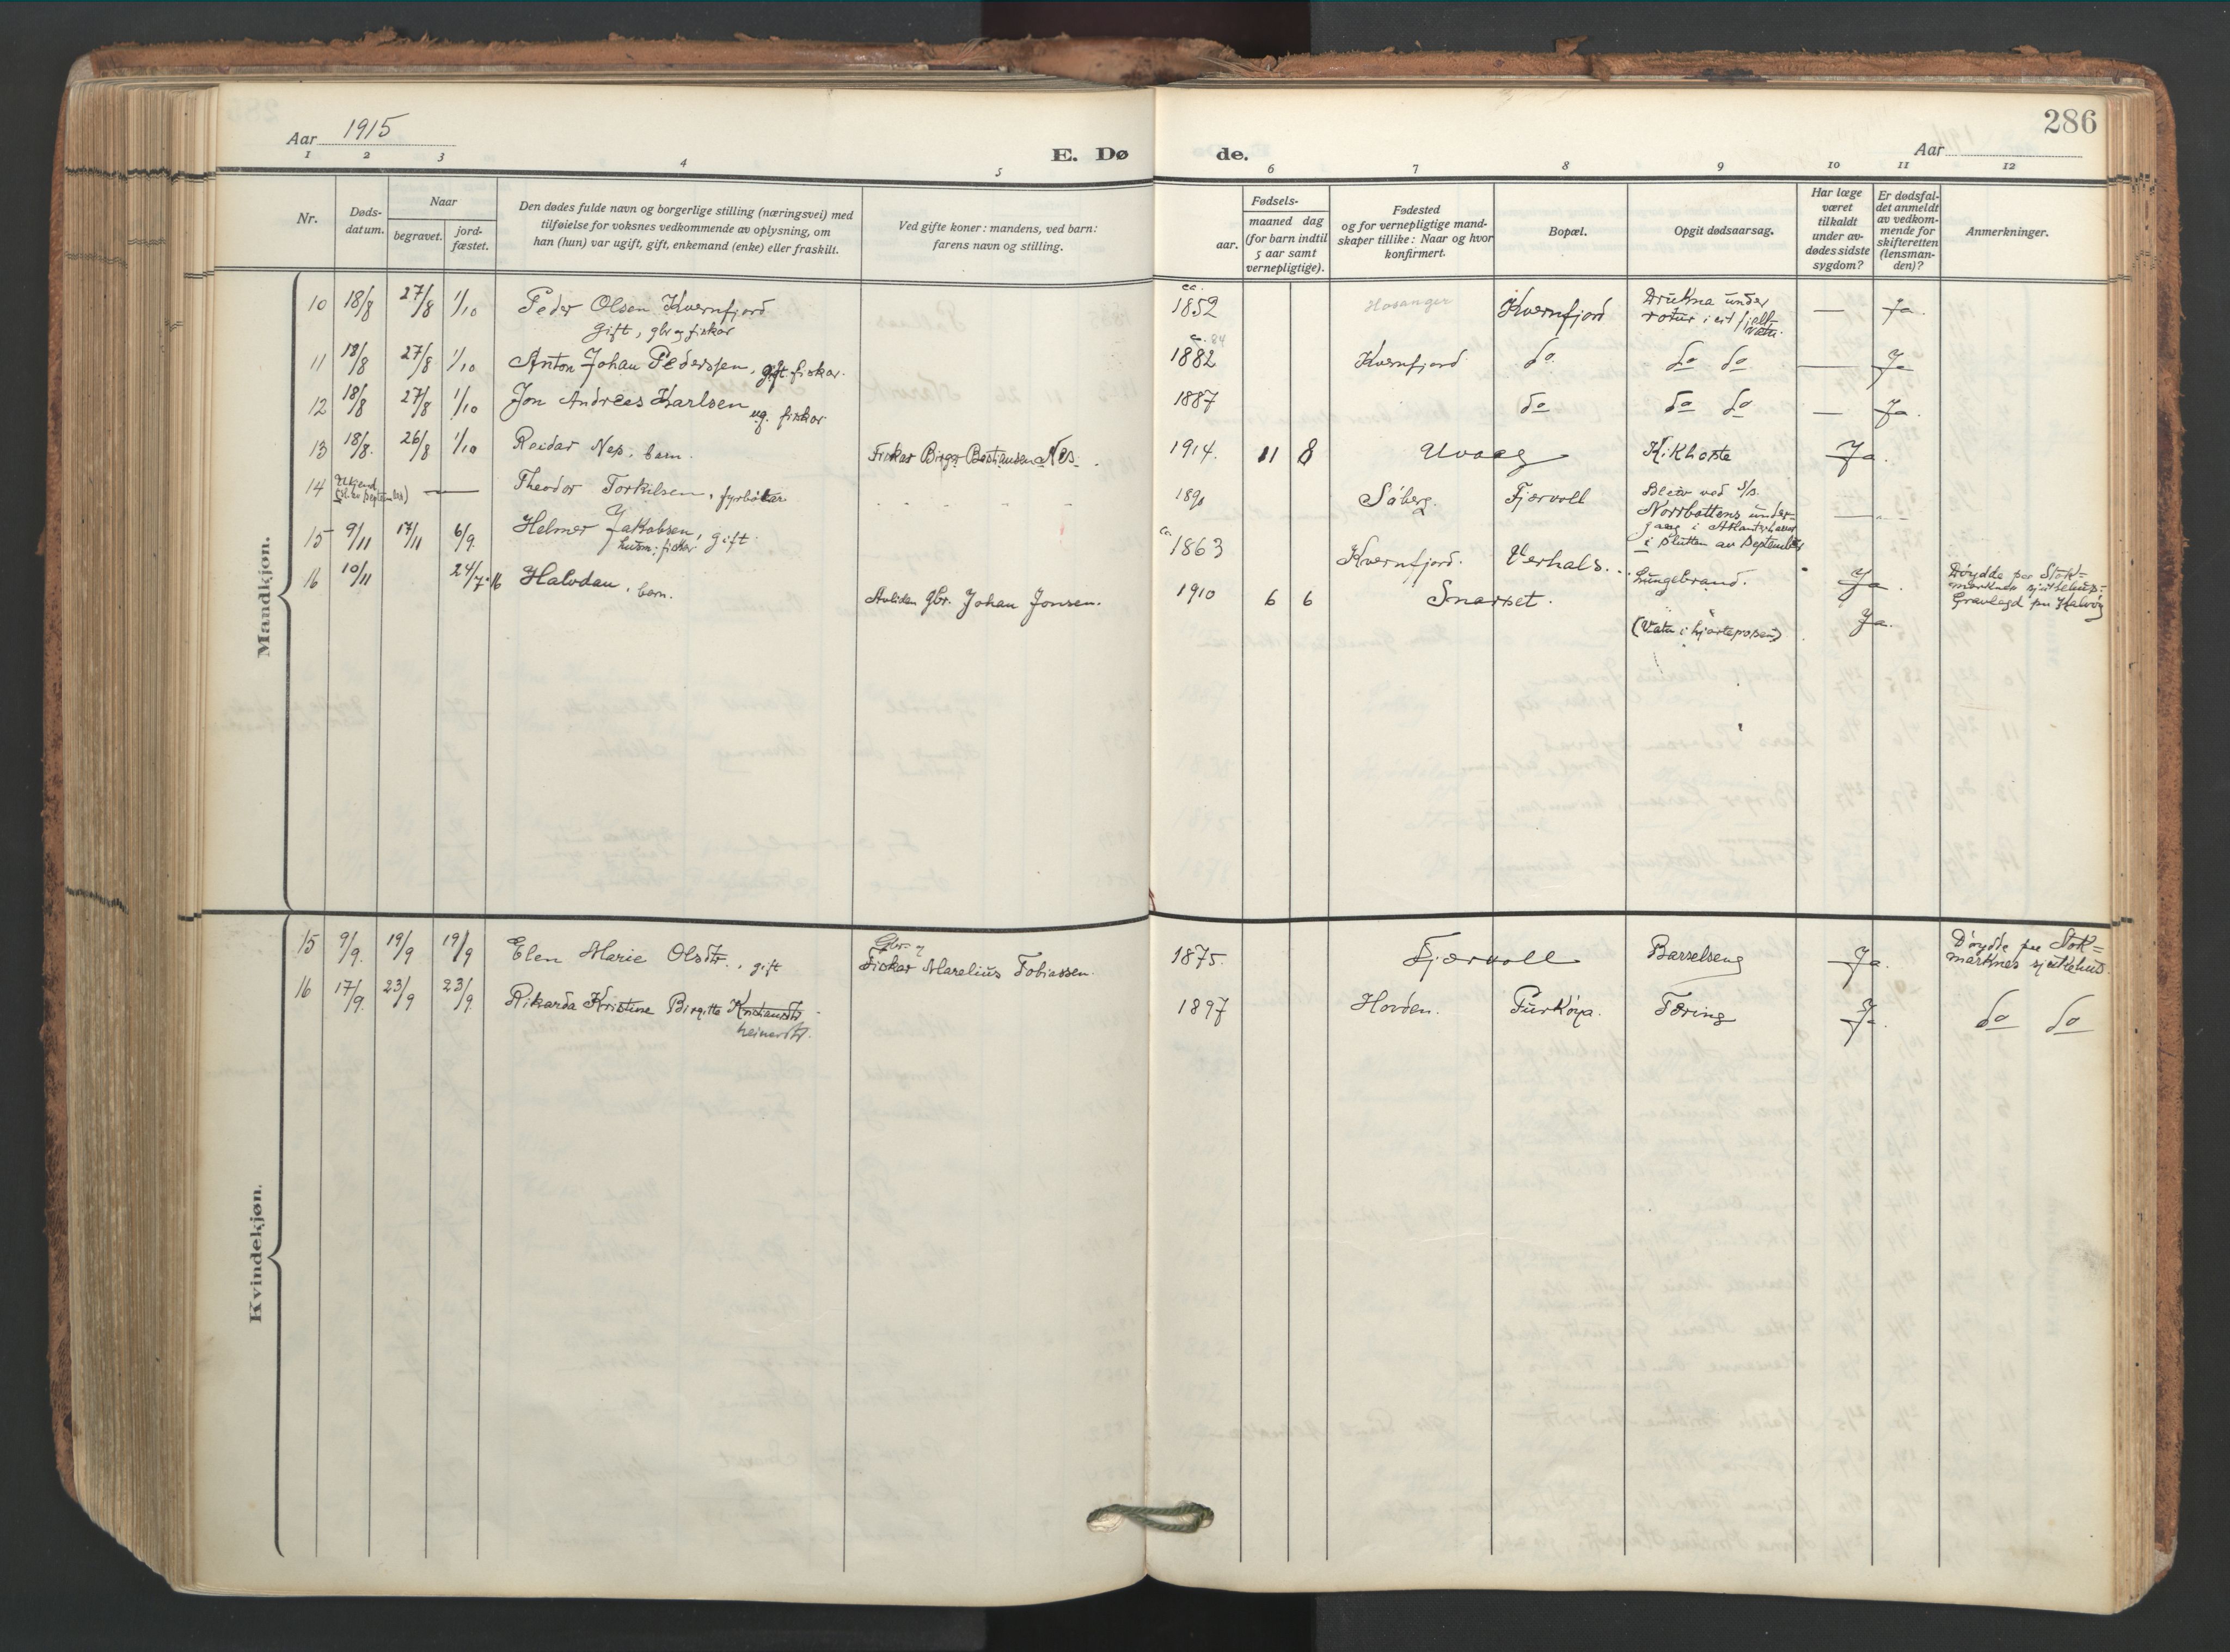 286
Aar 1915
E. Dø de.
Aar
1 2 3 4 5 6 7 8 9 10 11 12
Nr.
Døds-
datum.
Naar
begravet.
jord-
fæstet.
Den dødes fulde navn og borgerlige stilling (næringsvei) med
tilføielse for voksnes vedkommende av oplysning, om
han (hun) var ugift, gift, enkemand (enke) eller fraskilt.
Ved gifte koner: mandens, ved barn:
farens navn og stilling.
Fødsels-
aar.
maaned dag
(for barn indtil
5 aar samt
vernepligtige).
Fødested
og for vernepligtige mand-
skaper tillike: Naar og hvor
konfirmert.
Bopæl.
Opgit dødsaarsag.
Har læge
været
tilkaldt
under av-
dødes sidste
sygdom?
Er dødsfal-
det anmeldt
av vedkom-
mende for
skifteretten
(lensman-
den)?
Anmerkninger.
Mandkjøn.
10 18/8 27/8 1/10 Peder Olsen Kvernfjord ca. 1852 Hosanger Kvernfjord Drukna under — Ja.
gift, gbr og fiskar
rotur i eit fjell-
vatn.
11 18/8 27/8 1/10 Anton Johan Pederssen, gift fiskar. c. 84 1882 Kvernfjord do do do — Ja
12 18/8 27/8 1/10 Jon Andreas Karlsen ug. fiskar 1887 do do do — Ja.
13 18/8. 26/8 1/10 Reidar Nes, barn. Fiskar Birger Bastiansen Nes. 1914. 11 8 Uvaag Kikhoste Ja.
14 Ukjend — Theodor Torkilsen, fyrbøtar 1890 Såberg. Fjærvoll Bleiv ved S/s.
(sl. av september)
Norrbottens under-
gang i Atlanterhavet
i slutten av september
15 9/11 17/11 6/9. Helmer Jakobsen, gift. ca. 1863 Kvernfjord. Verhals. Lungebrand. Ja. Døydde paa Stok=
husm: fiskar
marknes sjukehus.
Gravlagd paa Halvøy
16 10/11 24/7-16 Halvdan, barn. Avliden gbr. Johan Jonsen. 1910 6 6 Snarset. (Vatn i hjarteposen) Ja.
Kvindekjøn.
15 9/9. 19/9 19/9 Elen Marie Olsdtr., gift Gbr. og 1875. Fjærvoll Barselseng Ja. Døydde paa Stok=
Fiskar Marelius Tobiassen.
marknes sjukehus.
16 17/9. 23/9 23/9. Rikarda Kristine Birgitte Kristiansdtr 1897 Hovden. Purkøya. Tæring Ja. do do
heinesdtr.